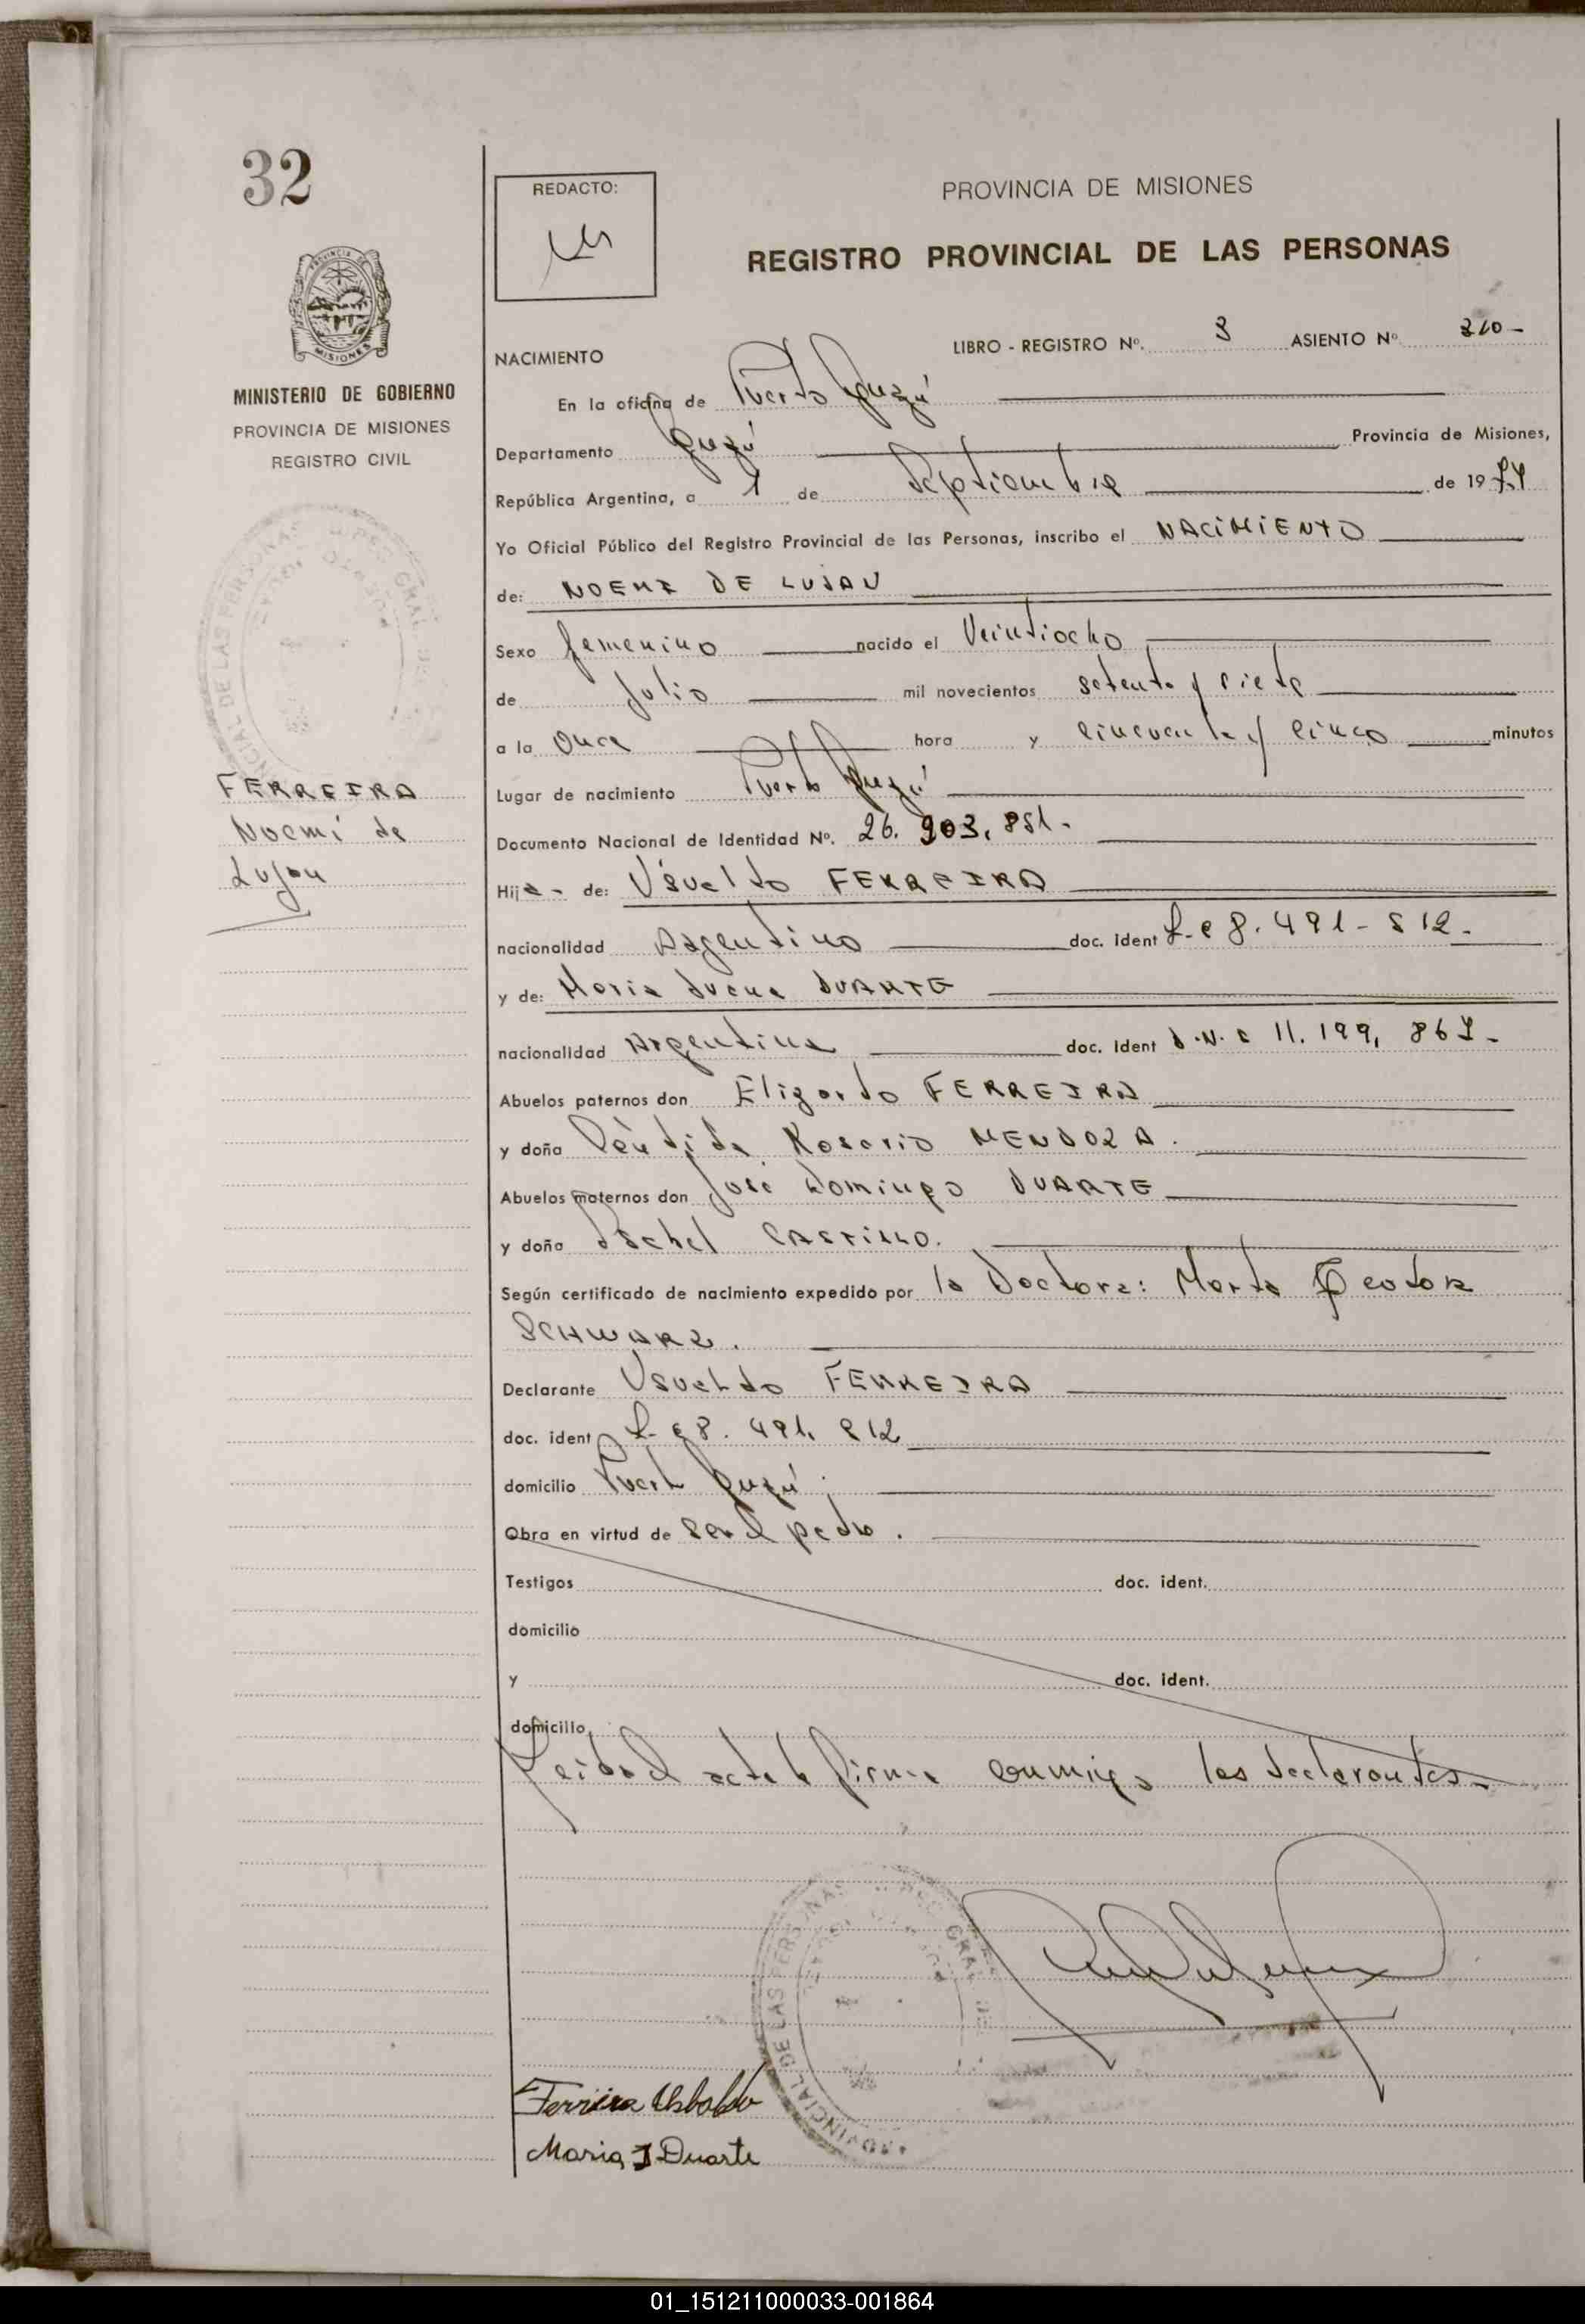 32
REDACTO:
PROVINCIA DE MISIONES
REGISTRO PROVINCIAL DE LAS PERSONAS
MISIONES
MINISTERIO DE GOBIERNO
PROVINCIA DE MISIONES
REGISTRO CIVIL
FERREIRA
Noemí de
Lujan
NACIMIENTO
LIBRO - REGISTRO Nº. 3 ASIENTO Nº 310-
En la oficina de Puerto Iguazú
Departamento Iguazú Provincia de Misiones,
República Argentina, a 1 de Septiembre de 1977
Yo Oficial Público del Registro Provincial de las Personas, inscribo el NACIMIENTO
de: NOEMI DE LUJAN
Sexo femenino nacido el Veintiocho
de Julio mil novecientos setenta y siete
a la Once hora y cincuenta y cinco minutos
Lugar de nacimiento Puerto Iguazú
Documento Nacional de Identidad Nº. 26.903.851-
Hija- de: Usualdo FERREIRA
nacionalidad Argentino doc. ident L.e 8.491-812-
y de: Maria DUARTE
nacionalidad Argentina doc. ident D.N.I 11.199,867-
Abuelos paternos don Elizardo FERREIRA
y doña Cándida Rosario MENDOZA.
Abuelos maternos don José Domingo DUARTE
y doña CASTILLO.
Según certificado de nacimiento expedido por la Doctora: Marta Teodora
SCHWARZ.
Declarante Usualdo FERREIRA
doc. ident L.e 8.491.812
domicilio Puerto Iguazú.
Obra en virtud de ser el padre.
Testigos doc. ident.
domicilio
y doc. ident.
domicilio
Leida el acta la firman conmigo los declarantes-
Ferreira Usbaldo
Maria J Duarte
01_151211000033-001864